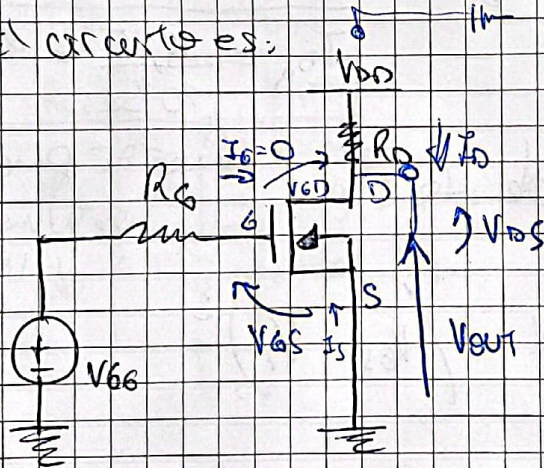 el circuito es:
VDD
IG=0
RD
ID
RG
VGD
D
G
VDS
S
VGS
IS
VOUT
VGG